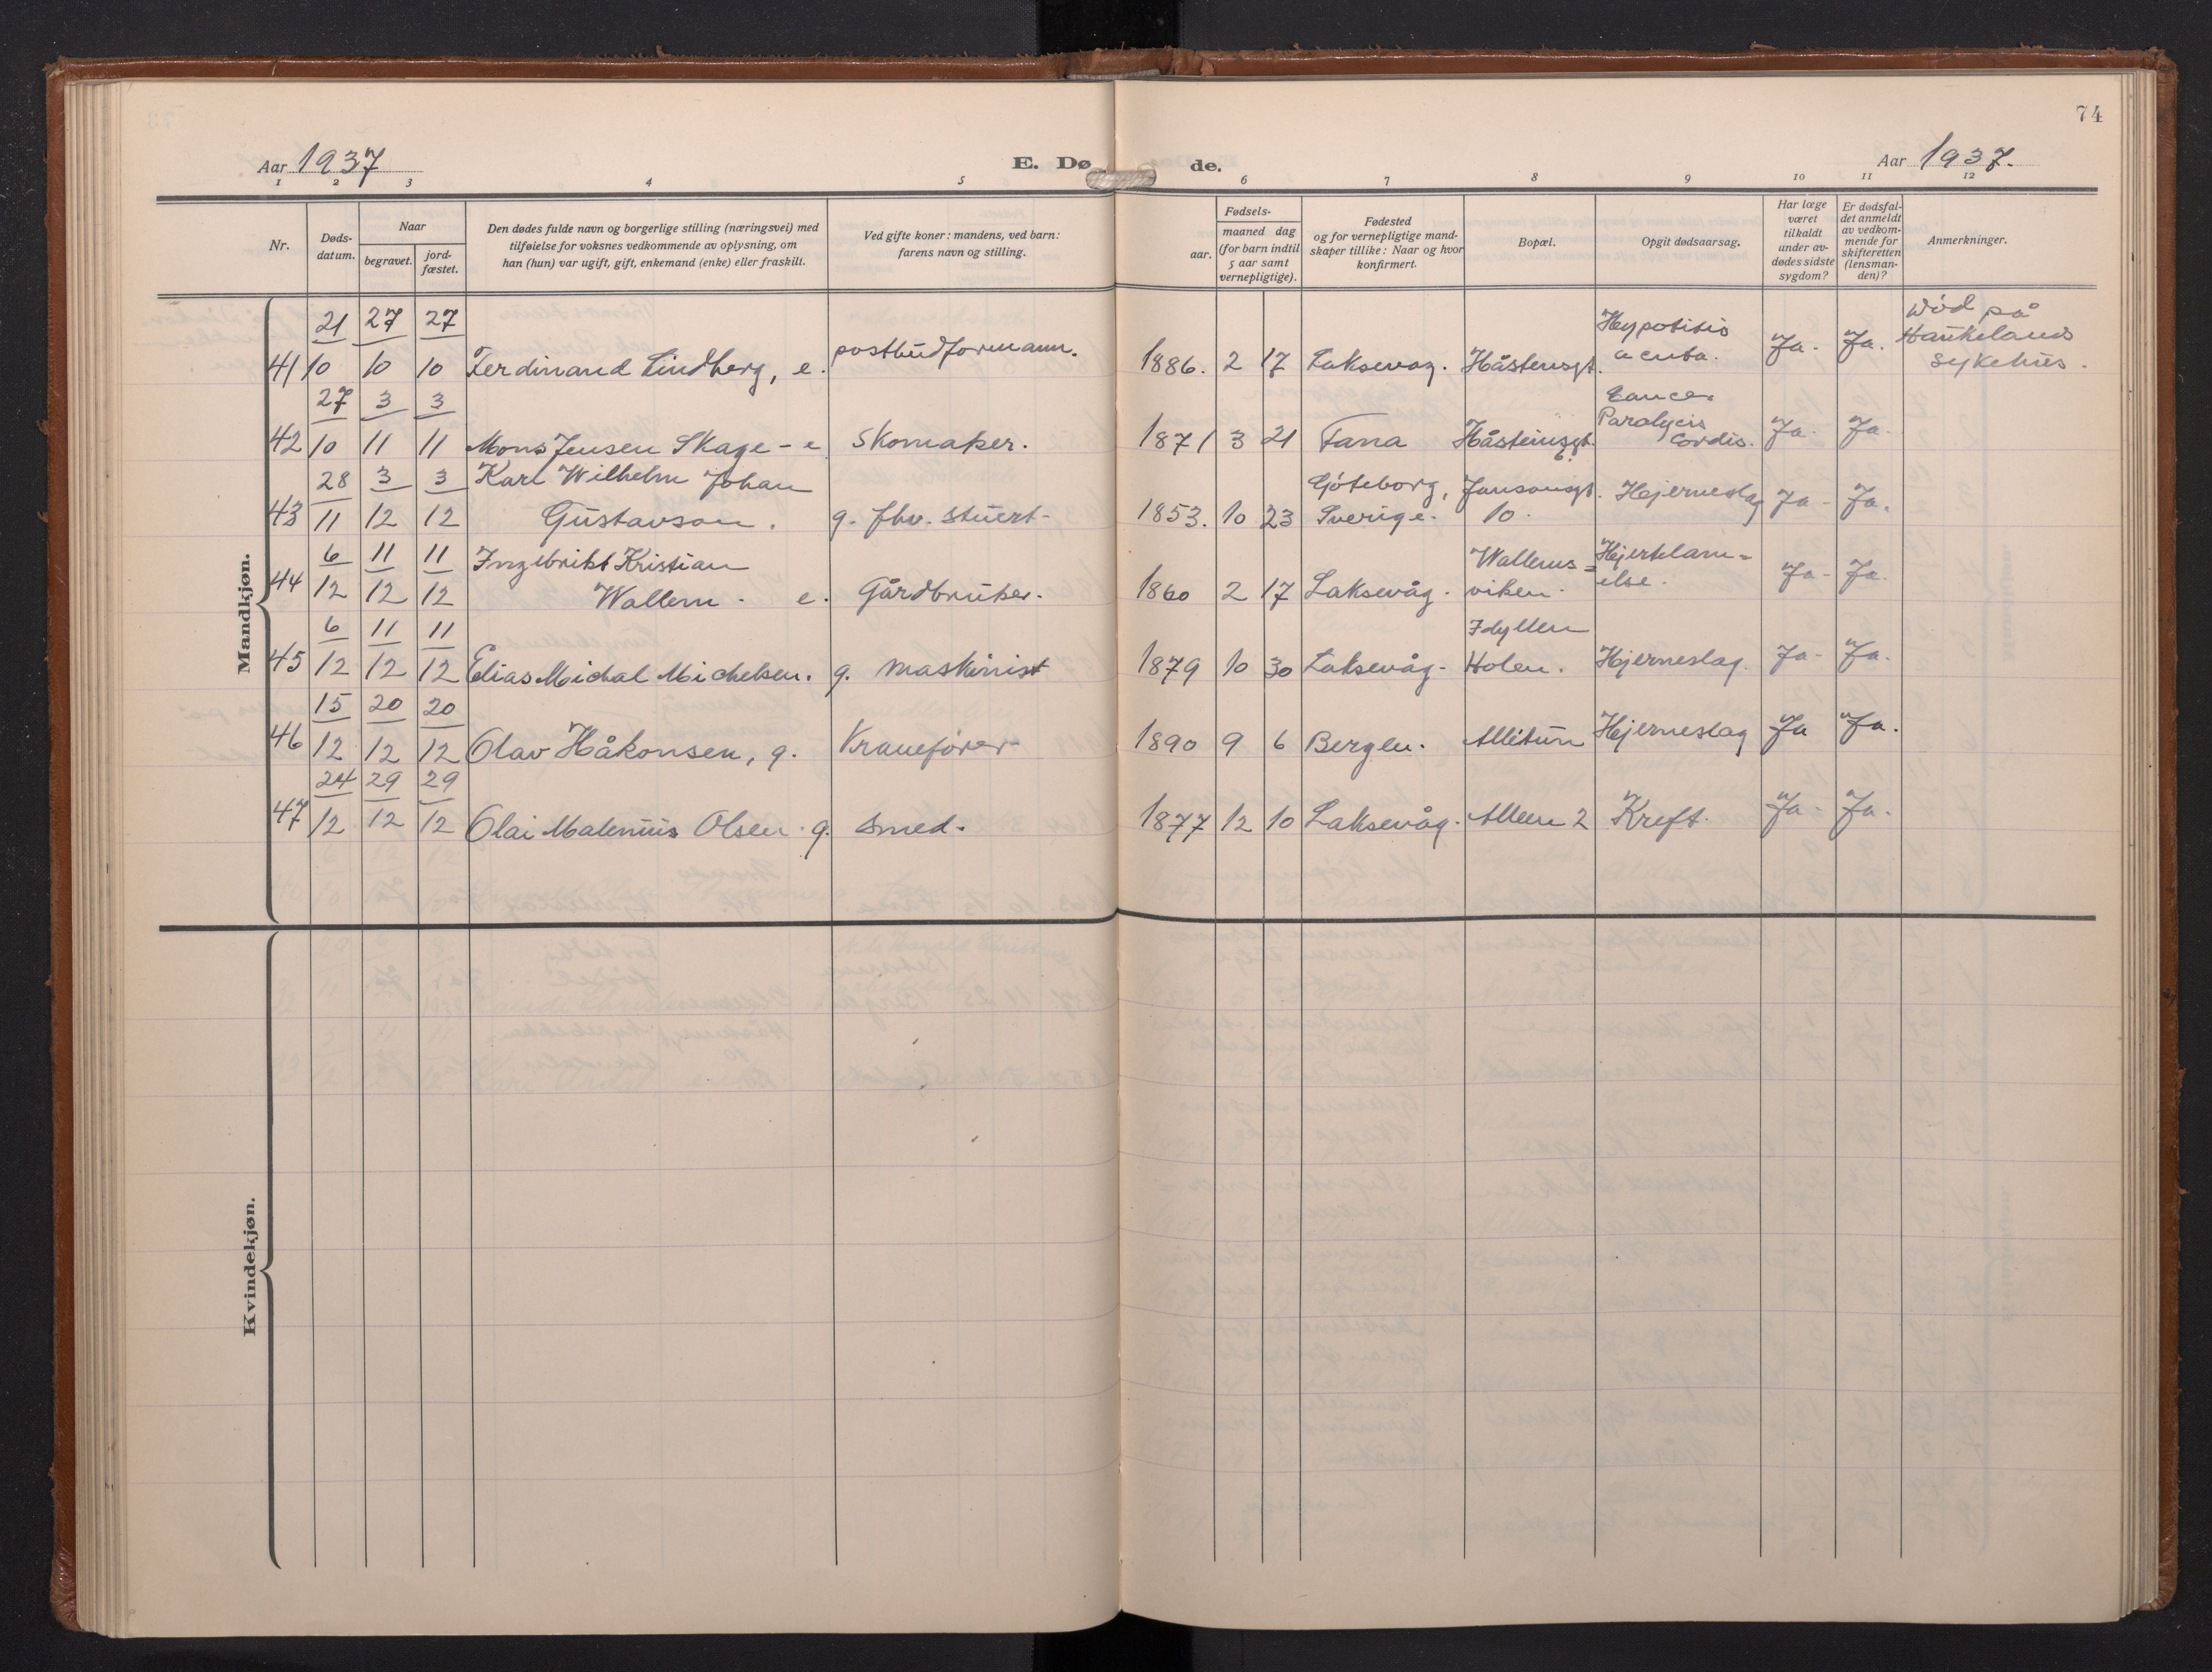 74
Aar 1937 E. Dø de. Aar 1937.
1 2 3 4 5 6 7 8 9 10 11 12
Nr.
Døds-
datum.
Naar
begravet.
jord-
fæstet.
Den dødes fulde navn og borgerlige stilling (næringsvei) med
tilføielse for voksnes vedkommende av oplysning, om
han (hun) var ugift, gift, enkemand (enke) eller fraskilt.
Ved gifte koner: mandens, ved barn:
farens navn og stilling.
Fødsels-
aar.
maaned dag
(for barn indtil
5 aar samt
vernepligtige).
Fødested
og for vernepligtige mand-
skaper tillike: Naar og hvor
konfirmert.
Bopæl.
Opgit dødsaarsag.
Har læge
været
tilkaldt
under av-
dødes sidste
sygdom?
Er dødsfal-
det anmeldt
av vedkom-
mende for
skifteretten
(lensman-
den)?
Anmerkninger.
Mandkjøn.
21 27 27 Død på
41 10 10 10 Ferdinand Lindberg, e. postbudformann. 1886. 2 17 Laksevag. Håstensgt. acuta. Ja. Ja. Haukelands
sykehus.
27 3 3 Cancer
42 10 11 11 Mons Jensen Skage - e skomaker. 1871 3 21 Fana Håsteinsgt. Paralysis Cordis. Ja. Ja.
28 3 3 Karl Wilhelm Johan Göteborg, Jansonsgt.
43 11 12 12 Gustavson. g. fhv. stuert. 1853. 10 23 Sverige. 10. Hjerneslag Ja - Ja.
6 11 11 Ingebrikt Kristian Wallems= Hjertelam=
44 12 12 12 Wallem. e. Gårdbruker. 1860 2 17 Laksevåg. viken. else. Ja - Ja.
6 11 11 Idyllen
45 12 12 12 Elias Michal Michelsen. g. maskinist 1879 10 30 Laksevåg. Holen. Hjerneslag. Ja - Ja.
15 20 20
46 12 12 12 Olav Håkonsen, g. Kranefører 1890 9 6 Bergen. Allétun Hjerneslag Ja Ja.
24 29 29
47 12 12 12 Olai Malenius Olsen. g. smed. 1877 12 10 Laksevåg. Alleen 2 Kreft. Ja - Ja.
Kvindekjøn.